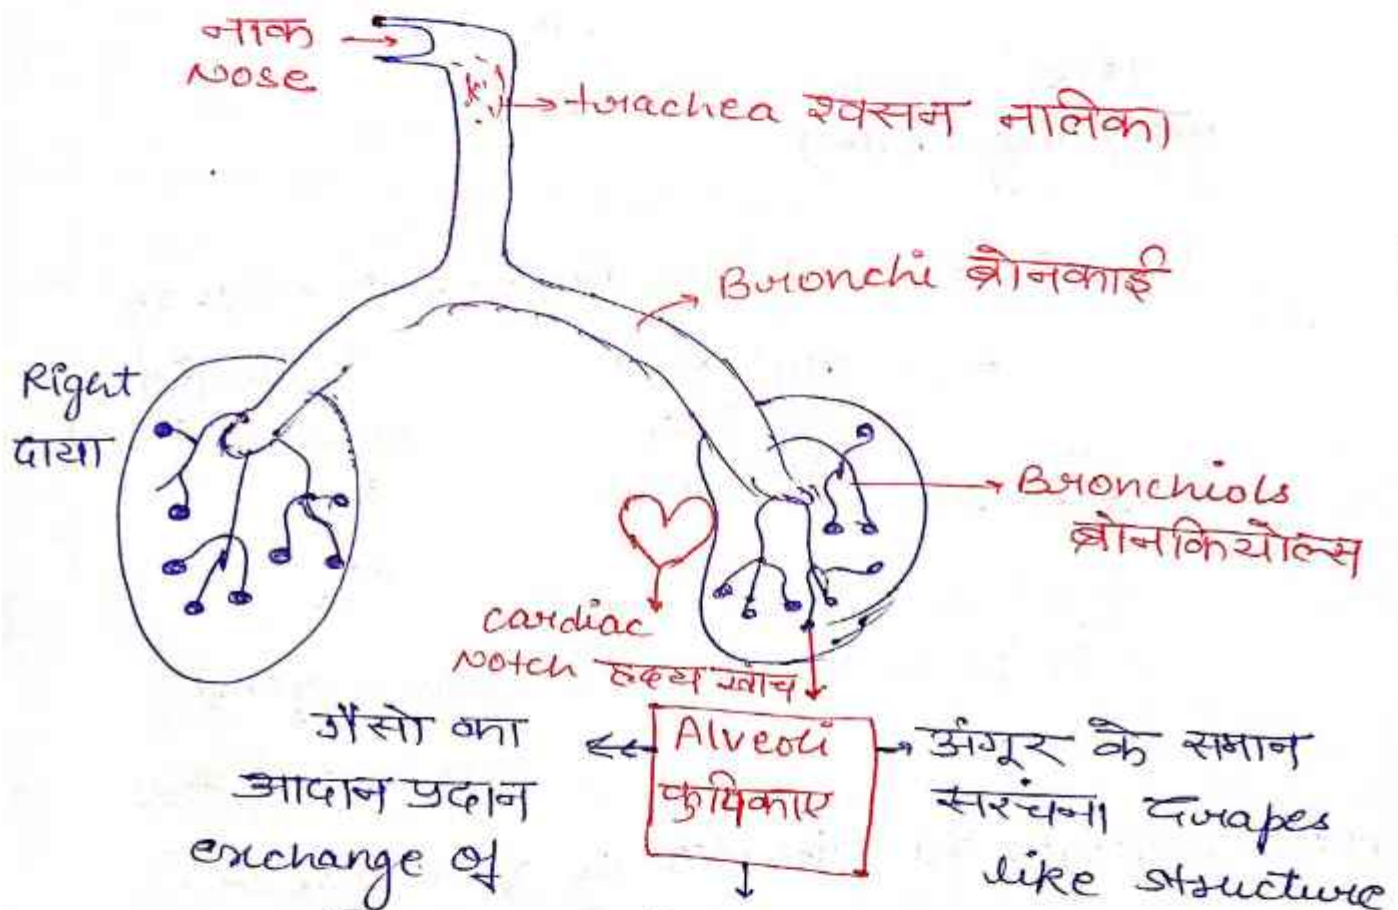 नाक
Nose
trachea श्वसन नालिका
Bronchi ब्रोनकाई
Right
दाया
Bronchiols
ब्रोनकियोल्स
Cardiac
Notch हृदय खाच
गैसो का
आदान प्रदान
exchange of
Alveoli
कुपिकाए
अंगूर के समान
सरंचना Grapes
like structure